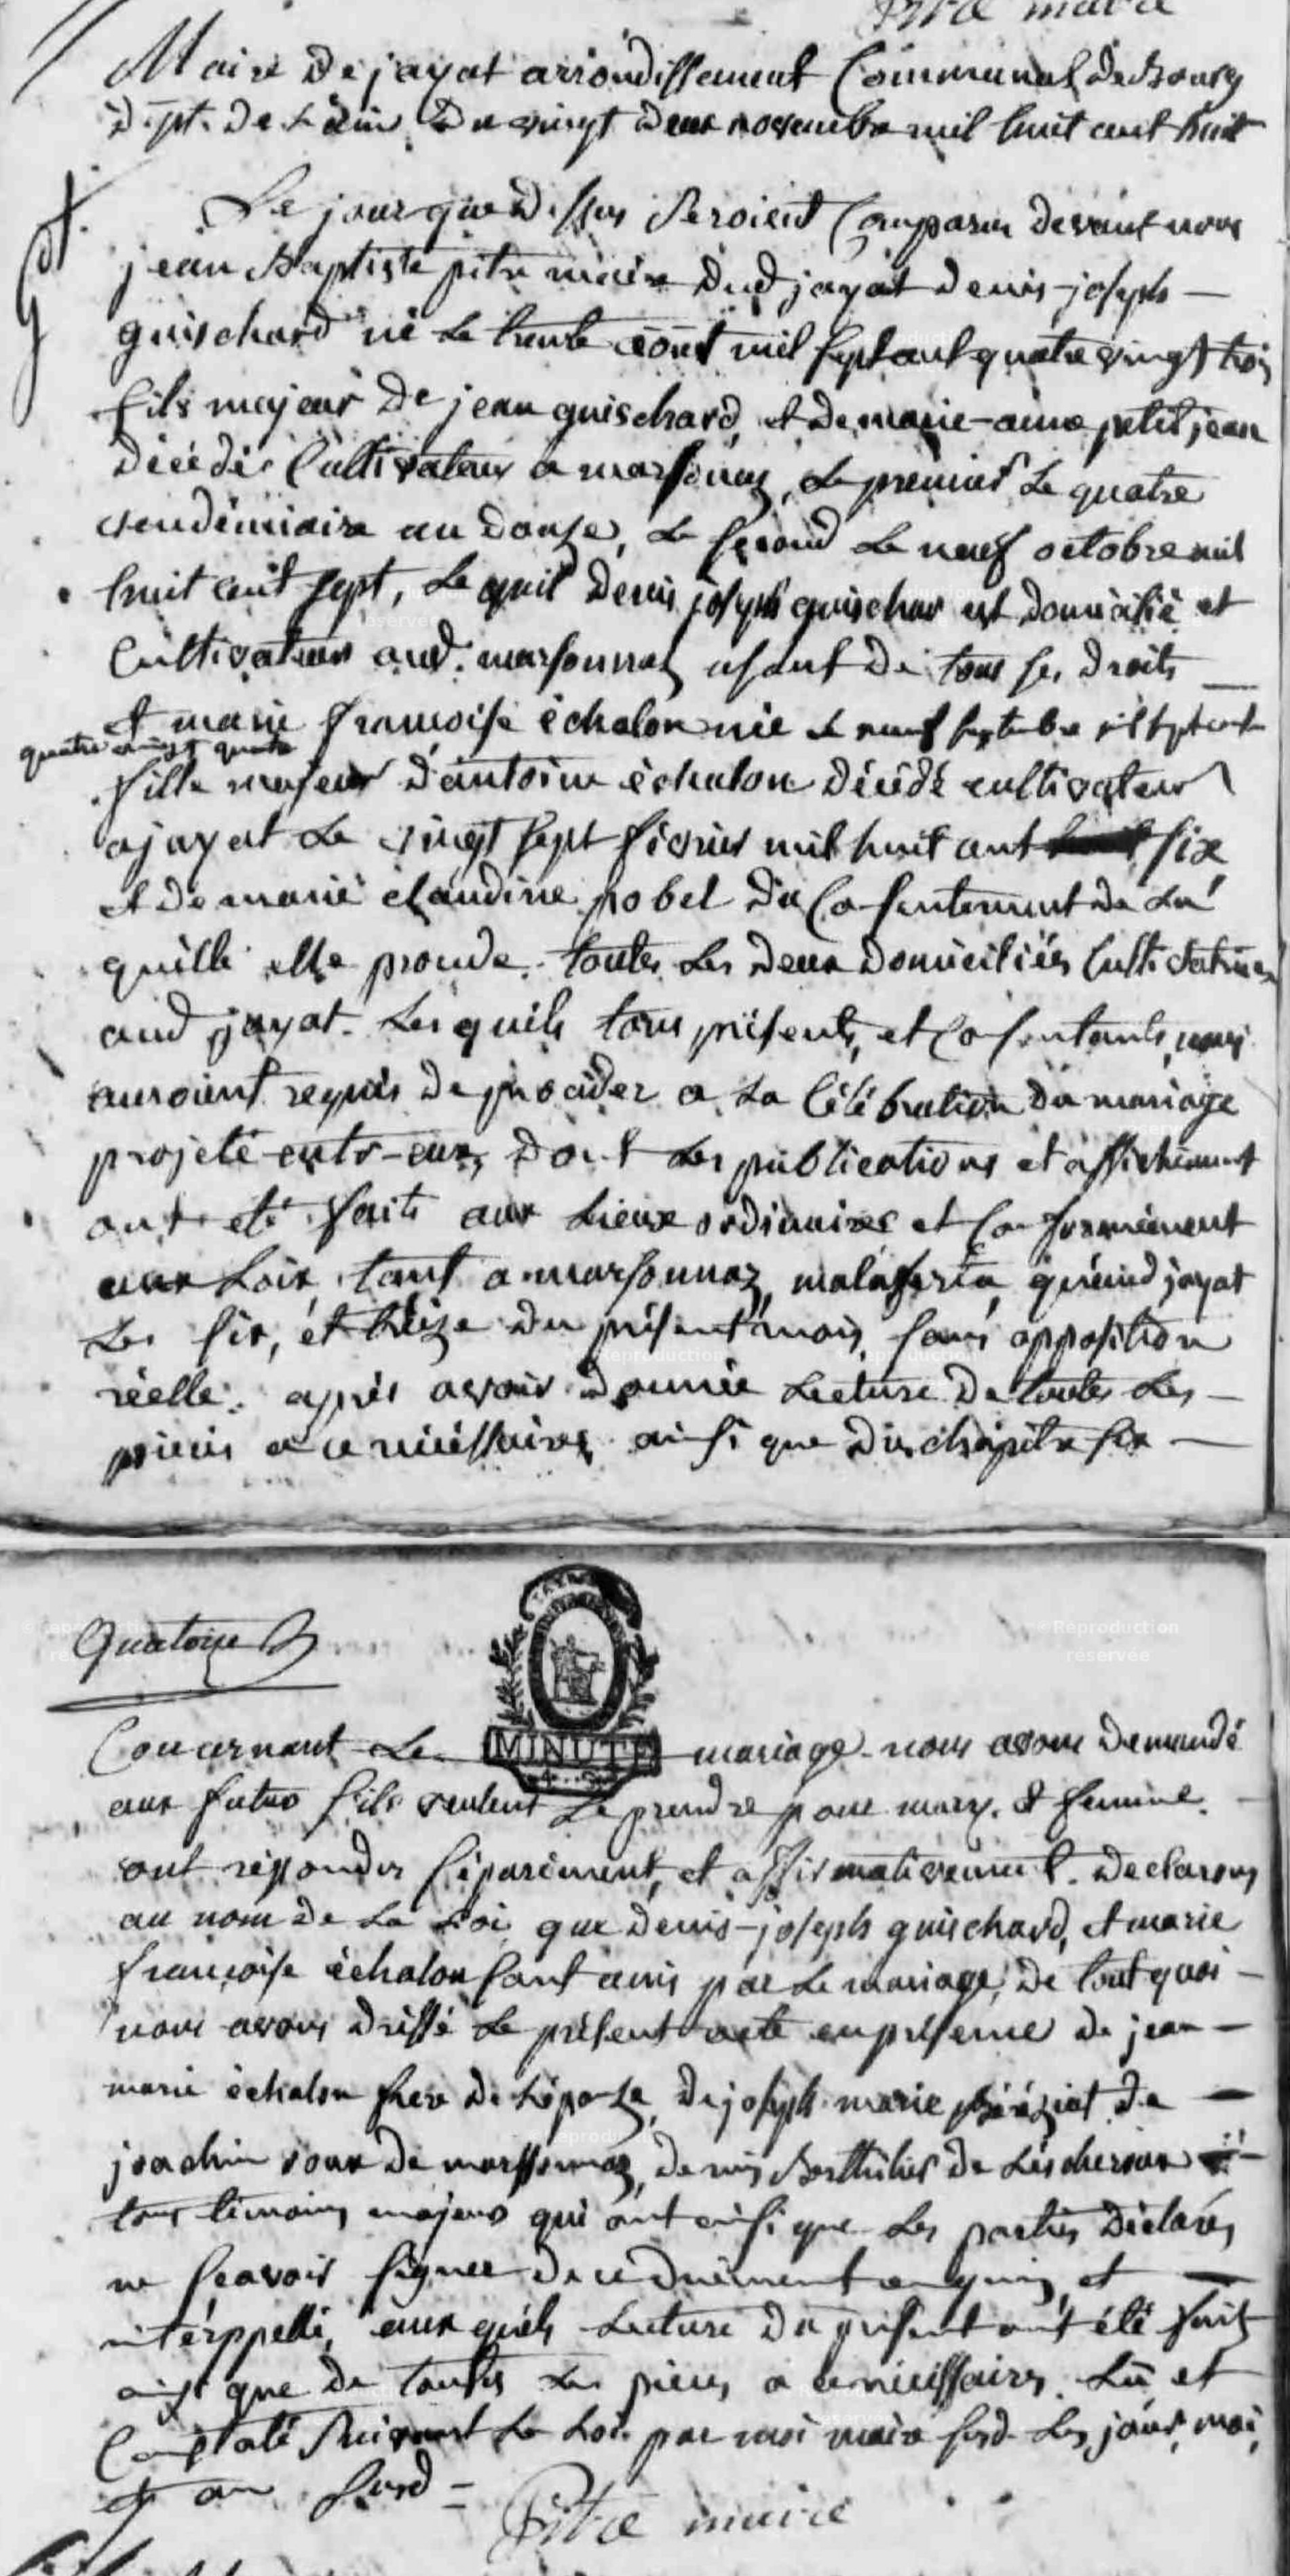 Pitre maire
Maire de jayat arrondissement Communal de Bourg
Dept. de L'ain Du vingt deux novembre mil huit cent huit
Le jour que dissus Seroient Comparus devant nous
jean Baptiste pitre maire dud jayat denis-joseph —
guischard né Le trente aout mil Sept cent quatre vingt trois
fils majeur De jean guischard, et de marie-aime petitjean
décédés Cultivateurs a marsonnaz, Le premier Le quatre
vendémiaire an douze, Le Second Le neuf octobre mil
huit cent sept, Le quil Denis joseph guischar est domicilié et
Cultivateur aud. marsonnaz usant de tous ses droits —
et marie francoise échalon née Le neuf septembre mil sept cent
quatre vingt quatre
fille majeur d'antoine échalon décédé cultivateur
a jayat Le vingt sept fevrier mil huit cent six
et de marie claudine pobel du Cosentement de La
quille elle procude. toutes Les deux domiciliées Cultivatrices
aud jayat. Les quils tous présents, et Cosentants, nous
auroient requis de procéder a La Célébration du mariage
projeté entr-eux, dont Les publications et affichement
ont été faits aux Lieux ordinaires et Conformément
aux Loix, tant a marsonnaz, malafretta, qu'aud jayat
Les six, et treize du présent mois, sans opposition
réelle. après avoir donnée Lecture de toutes Les —
pieces a ce nécéssaires ainsi que du chapitre six —
Quatorze
MINUTE
Concernant Le mariage. nous avons demandé
aux futurs s'ils veulent Se prendre pour mary. et femme.
ont répondus séparément, et affirmativement. déclarons
au nom de La Loi que denis-joseph guischard, et marie
françoise échalon sont unis par Le mariage, de tout quoi —
nous avons dréssé Le présent acte en présence de jean —
marie échalon frere de L'épouse, de joseph marie pérèziat de —
joachin roux de marssonnaz, denis Berthilier de Léscheroux
tous témoins majeurs qui ont ainsi que Les parties déclarés
ne Scavoir signer de ce duément enquis, et —
intérppellé, aux quels Lecture du présent ont été fait
ainsi que de toutes Les pieces a ce nécéssaires. Lu et
Constaté Suivant La Loi. par moi maire susd. Les jour, moi,
et an susd =
Pitre maire